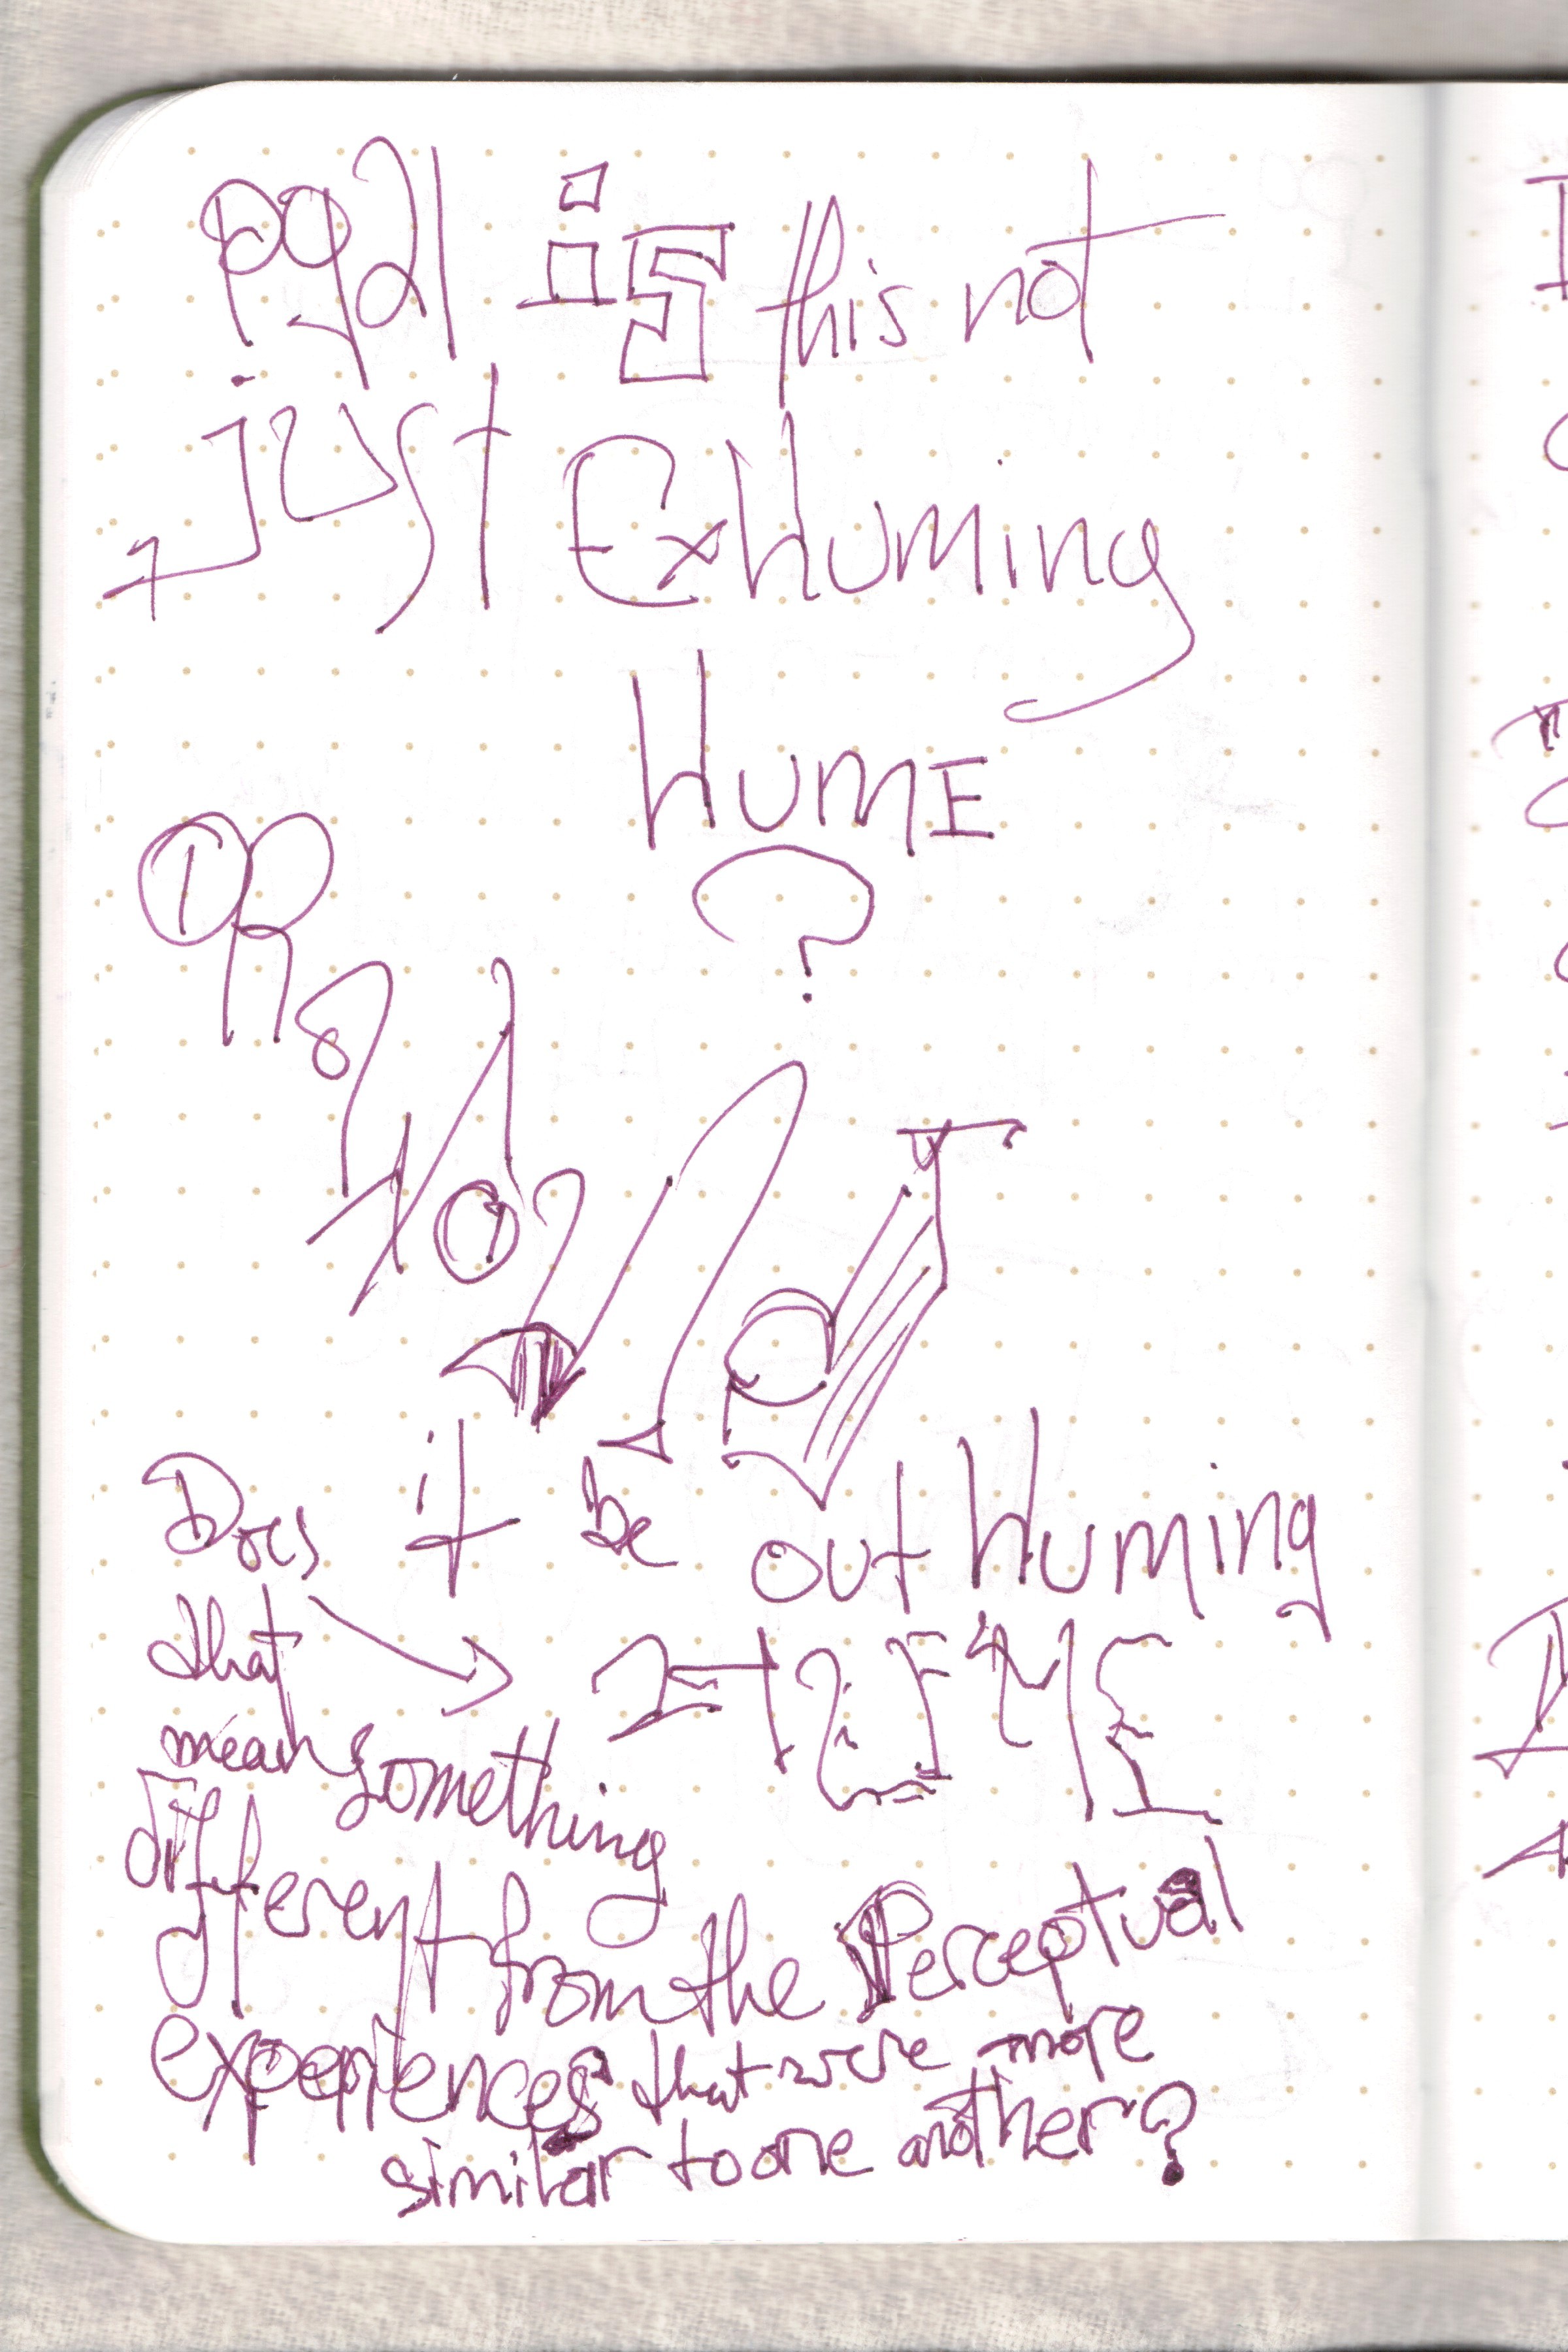 pg21 is this not
just ExHuming
HUME
?
OR
would
Does it be out Huming
that → HUME
mean something
different from the Perceptual
experiences that were more
similar to one another?